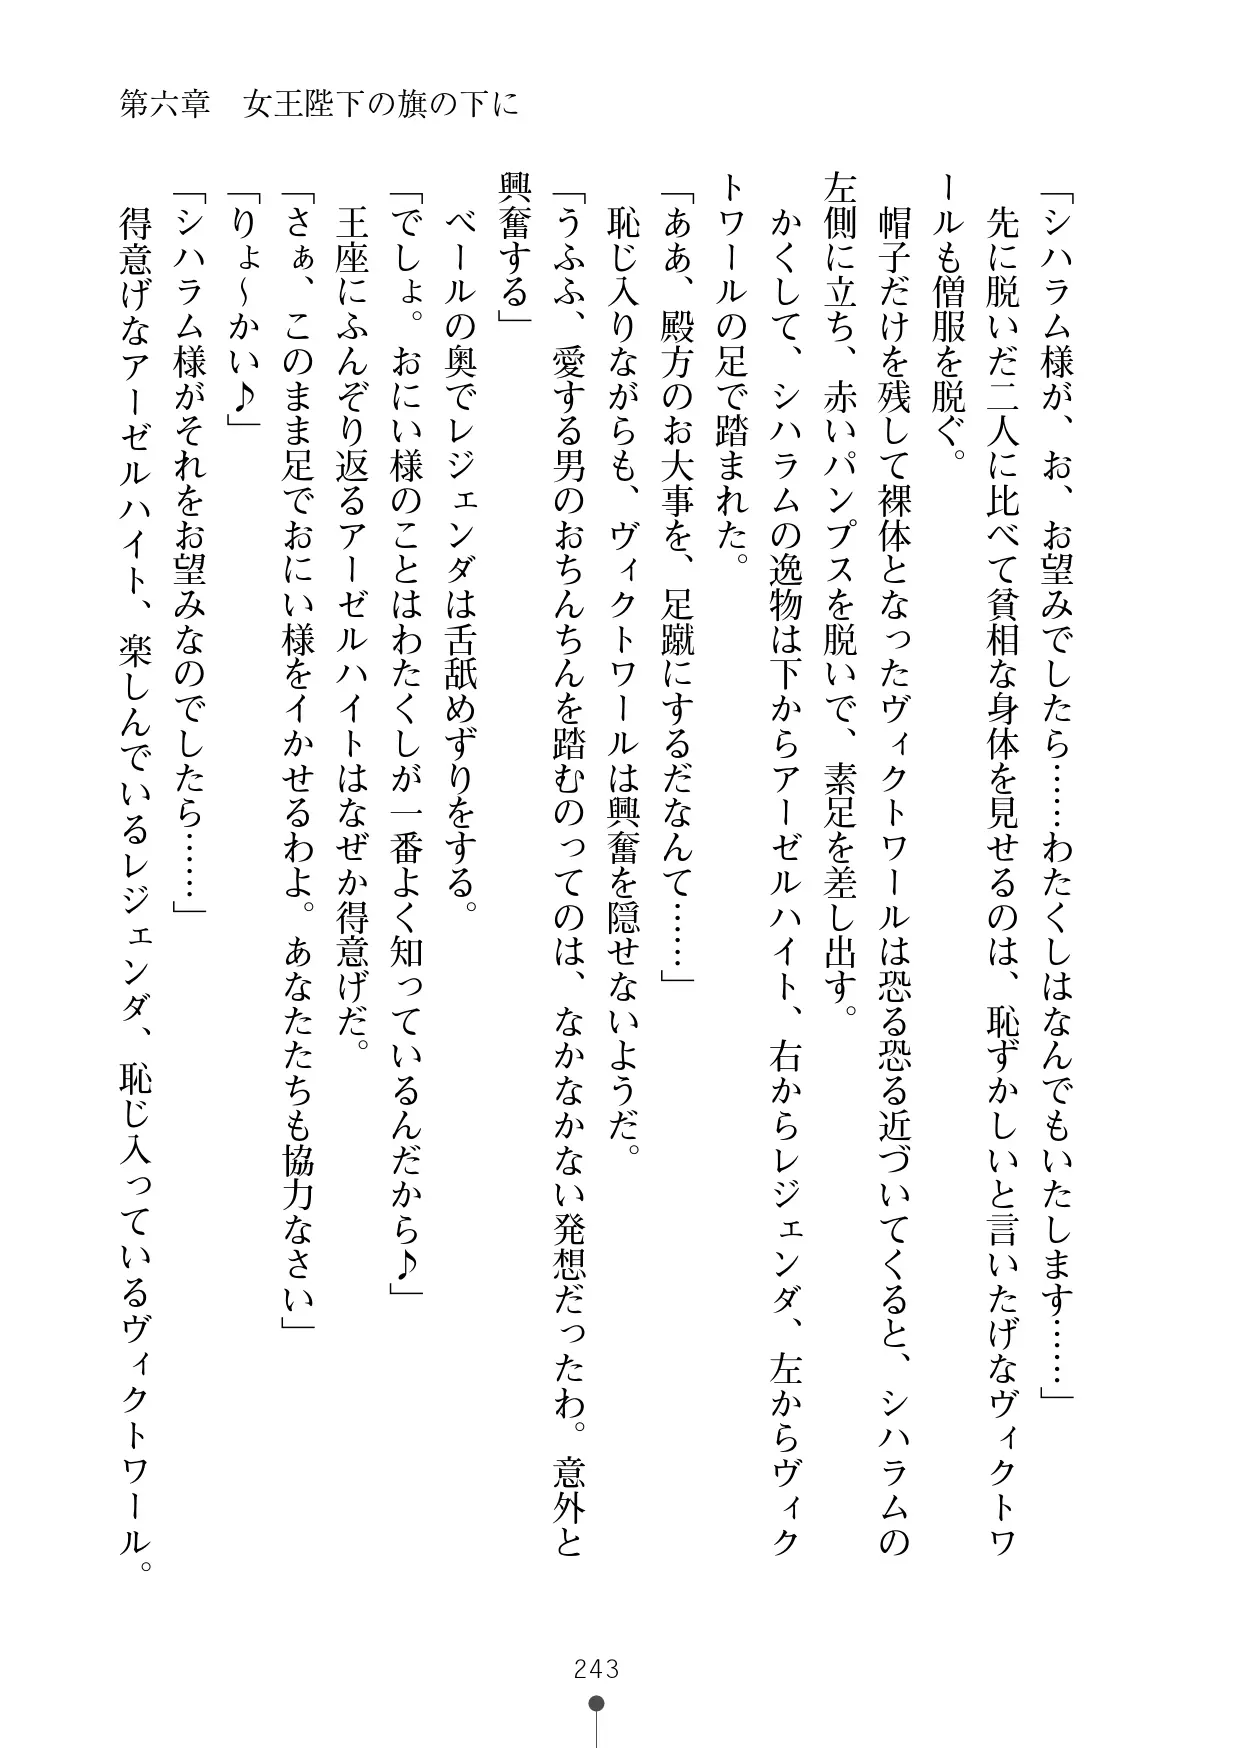 第六章　女王陛下の旗の下に
「シハラム様が、お、お望みでしたら……わたくしはなんでもいたします……」
先に脱いだ二人に比べて貧相な身体を見せるのは、恥ずかしいと言いたげなヴィクトワ
ールも僧服を脱ぐ。
帽子だけを残して裸体となったヴィクトワールは恐る恐る近づいてくると、シハラムの
左側に立ち、赤いパンプスを脱いで、素足を差し出す。
かくして、シハラムの逸物は下からアーゼルハイト、右からレジェンダ、左からヴィク
トワールの足で踏まれた。
「ああ、殿方のお大事を、足蹴にするだなんて……」
恥じ入りながらも、ヴィクトワールは興奮を隠せないようだ。
「うふふ、愛する男のおちんちんを踏むのってのは、なかなかない発想だったわ。意外と
興奮する」
ベールの奥でレジェンダは舌舐めずりをする。
「でしょ。おにい様のことはわたくしが一番よく知っているんだから♪」
王座にふんぞり返るアーゼルハイトはなぜか得意げだ。
「さぁ、このまま足でおにい様をイかせるわよ。あなたたちも協力なさい」
「りょ～かい♪」
「シハラム様がそれをお望みなのでしたら……」
得意げなアーゼルハイト、楽しんでいるレジェンダ、恥じ入っているヴィクトワール。
243